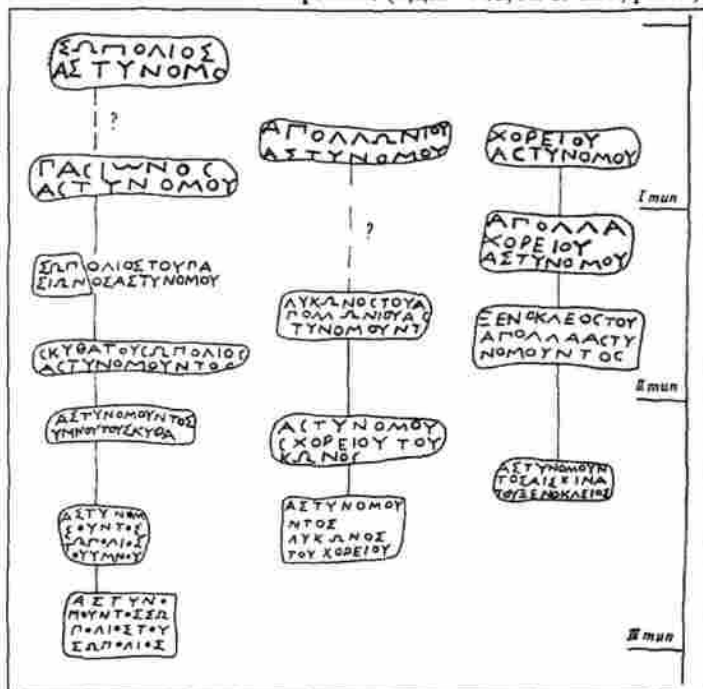 ΣΩΠΟΛΙΟΣ
ΑΣΤΥΝΟΜΟ
?
ΠΑCΙΩΝΟC
ΑCΤΥΝΟΜΟΥ
ΣΩΠΟΛΙΟΣΤΟΥΠΑ
ΣΙΩΝΟΣΑΣΤΥΝΟΜΟΥ
CΚΥΘΑΤΟΥCΩΠΟΛΙΟC
ΑCΤΥΝΟΜΟΥΝΤΟC
ΑΣΤΥΝΟΜΟΥΝΤΟΣ
ΥΜΝΟΥΤΟΥΣΚΥΘΑ
ΑΣΤΥΝΟΜ
ΣΟΥΝΤΟΣ
ΤΩΠΟΛΙΟΣ
ΟΥΥΜΝΟΥ
ΑΣΤΥΝΟ
ΜΟΥΝΤΟΣΣΩ
ΠΟΛΙΟΣΤΟΥ
ΣΩΠΟΛΙΟΣ
ΑΠΟΛΛΩΝΙΟΥ
ΑΣΤΥΝΟΜΟΥ
?
ΛΥΚΩΝΟCΤΟΥΑ
ΠΟΛΛΩΝΙΟΥΑC
ΤΥΝΟΜΟΥΝΤ
ΑCΤΥΝΟΜΟΥ
CΧΟΡΕΙΟΥ ΤΟΥ
ΚΩΝΟC
ΑΣΤΥΝΟΜΟΥ
ΝΤΟΣ
ΛΥΚΩΝΟΣ
ΤΟΥ ΧΟΡΕΙΟΥ
ΧΟΡΕΙΟΥ
ΑCΤΥΝΟΜΟΥ
ΑΠΟΛΛΑ
ΧΟΡΕΙΟΥ
ΑΣΤΥΝΟΜΟΥ
ΞΕΝΟΚΛΕΟCΤΟΥ
ΑΠΟΛΛΑΑCΤΥ
ΝΟΜΟΥΝΤΟC
ΑΣΤΥΝΟΜΟΥΝ
ΤΟΣΑΙΣΧΙΝΑ
ΤΟΥΞΕΝΟΚΛΕΙΟΣ
I тип
II тип
III тип